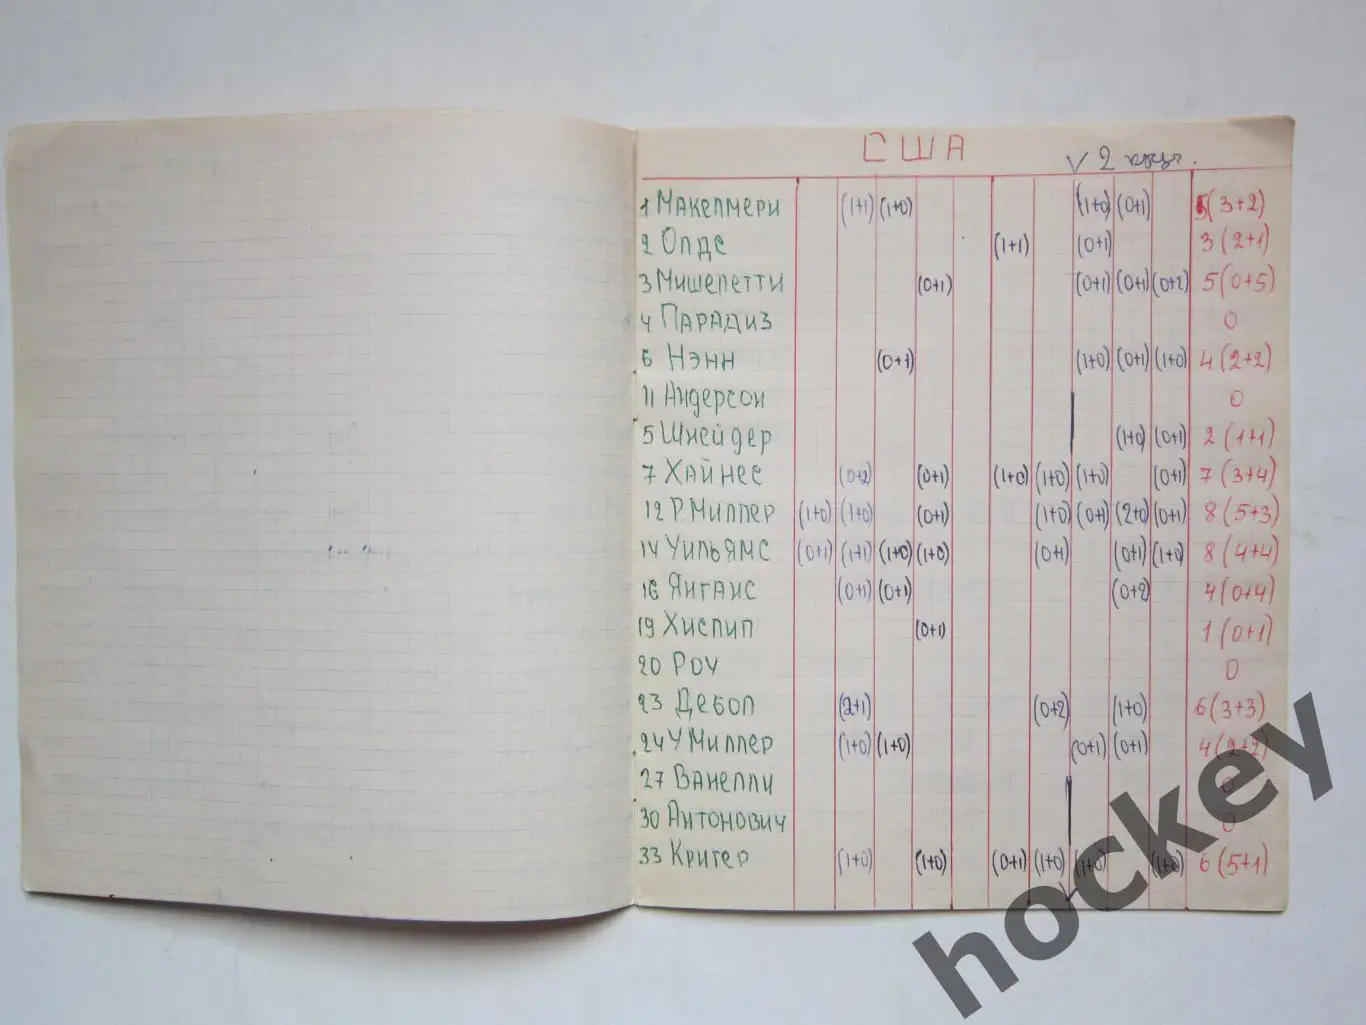 США
√ 2 круг.
1 Макелмери (1+1) (1+0) (1+0) (0+1) 5 (3+2)
2 Олдс (1+1) (0+1) 3 (2+1)
3 Мишелетти (0+1) (0+1) (0+1) (0+2) 5 (0+5)
4 Парадиз 0
6 Нэнн (0+1) (1+0) (0+1) (1+0) 4 (2+2)
11 Андерсон 0
5 Шнейдер (1+0) (0+1) 2 (1+1)
7 Хайнес (0+2) (0+1) (1+0) (1+0) (1+0) (0+1) 7 (3+4)
12 Р. Миллер (1+0) (1+0) (0+1) (1+0) (0+1) (2+0) (0+1) 8 (5+3)
14 Уильямс (0+1) (1+1) (1+0) (1+0) (0+1) (0+1) (1+0) 8 (4+4)
16 Янганс (0+1) (0+1) (0+2) 4 (0+4)
19 Хислип (0+1) 1 (0+1)
20 Роу 0
23 Дебол (2+1) (0+2) (1+0) 6 (3+3)
24 У Миллер (1+0) (1+0) (0+1) (0+1) 4 (2+2)
27 Ванелли 0
30 Антонович 0
33 Кригер (1+0) (1+0) (0+1) (1+0) (1+0) (1+0) 6 (5+1)
hockey